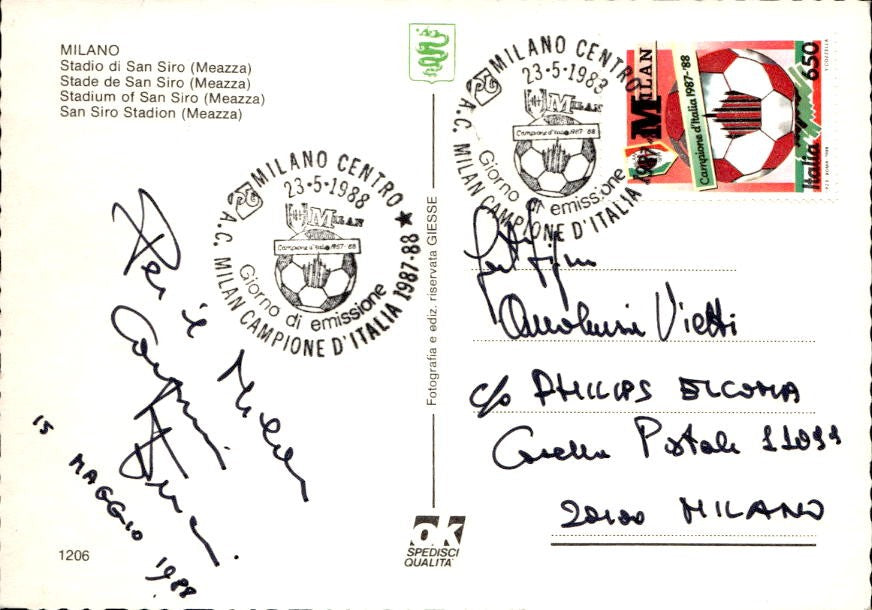 MILANO
Stadio di San Siro (Meazza)
Stade de San Siro (Meazza)
Stadium of San Siro (Meazza)
San Siro Stadion (Meazza)
MILANO CENTRO
23-5-1988
MILAN
Campione d'Italia 1987-88
Giorno di emissione
A.C. MILAN CAMPIONE D'ITALIA 1987-88
MILANO CENTRO
23-5-1983
MILAN
Campione d'Italia 1987-88
Giorno di emissione
A.C. MILAN CAMPIONE D'ITALIA 1987-88
MILAN
Campione d'Italia 1987-'88
Italia 650
Per il
15 MAGGIO 1988
Vietti
c/o PHILIPS ELCOMA
Casella Postale
20100 MILANO
Fotografia e ediz. riservata GIESSE
ok
SPEDISCI
QUALITA'
1206